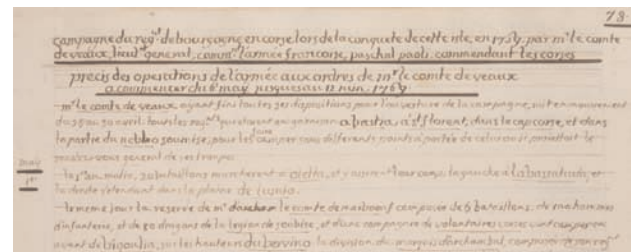 73.
campagne du reg.t de bourgogne en corse lors de la conquete de cette isle, en 1769, par m.r le comte
de vaux, lieut.t general, comm.t l'armée francoise, paschal paoli commendant les corses
precis des operations de l'armée aux ordres de m.r le comte de vaux
a commencer du 1er may jusques au 12 juin, 1769
m.r le comte de vaux ayant fini toutes ses dispositions pour l'ouverture de la campagne, mit en mouvement
du 25 au 30 avril, tous les reg.ts qui etoient en garnison a bastia, a s.t florent, dans le cap corse, et dans
la partie du nebbio soumise, pour les faire camper sous differents points a portée de celui ou il
rendez-vous general de ses troupes
may
1er
le 1er au matin, 20 bataillons marcherent a oletta, et y leur camp, la gauche a
la droite s'etendant dans la plaine de
le meme jour la reserve de m.r le comte de marboeuf composée de 6 bataillons, de
d'infanterie, et de 50 dragons de la legion de soubise, et d'une compagnie de volontaires corses vint camper en
avant de sur les hauteurs du la division du marquis d'arcambal, composée de